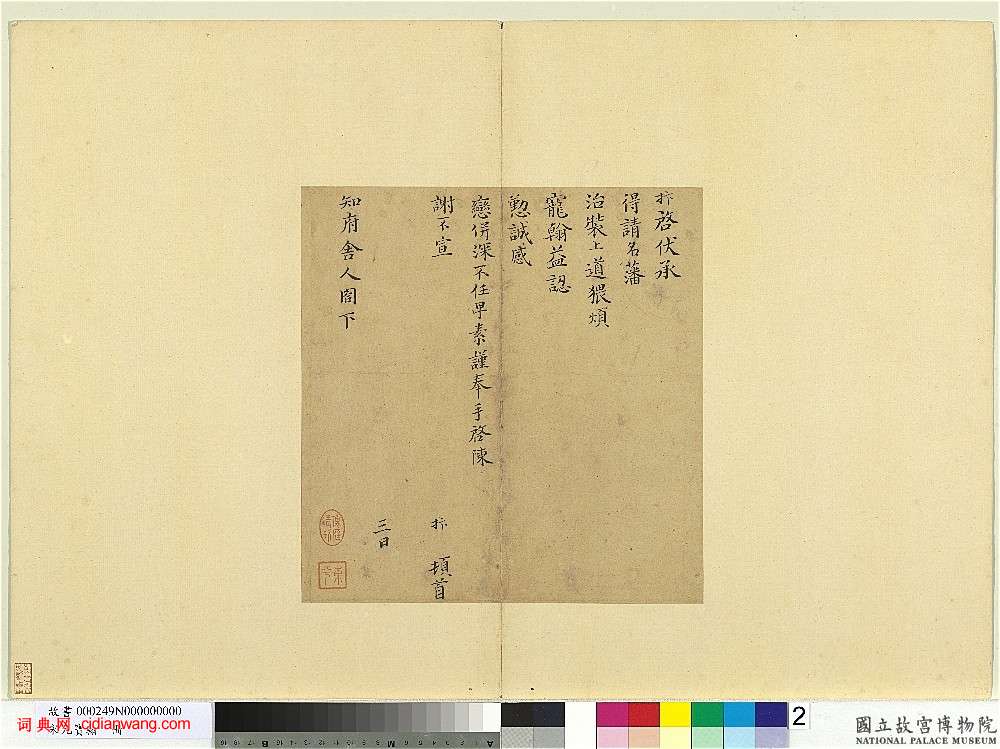 抃啓伏承
得請名藩
治裝上道猥煩
寵翰益認
懃誠感
戀併深不任早素謹奉手啓陳
謝不宣
抃 頓首
三日
知府舍人閤下
故書 000249N000000000
词典网：cidianwang.com
B
M
A
2
國立故宮博物院
NATIONAL PALACE MUSEUM